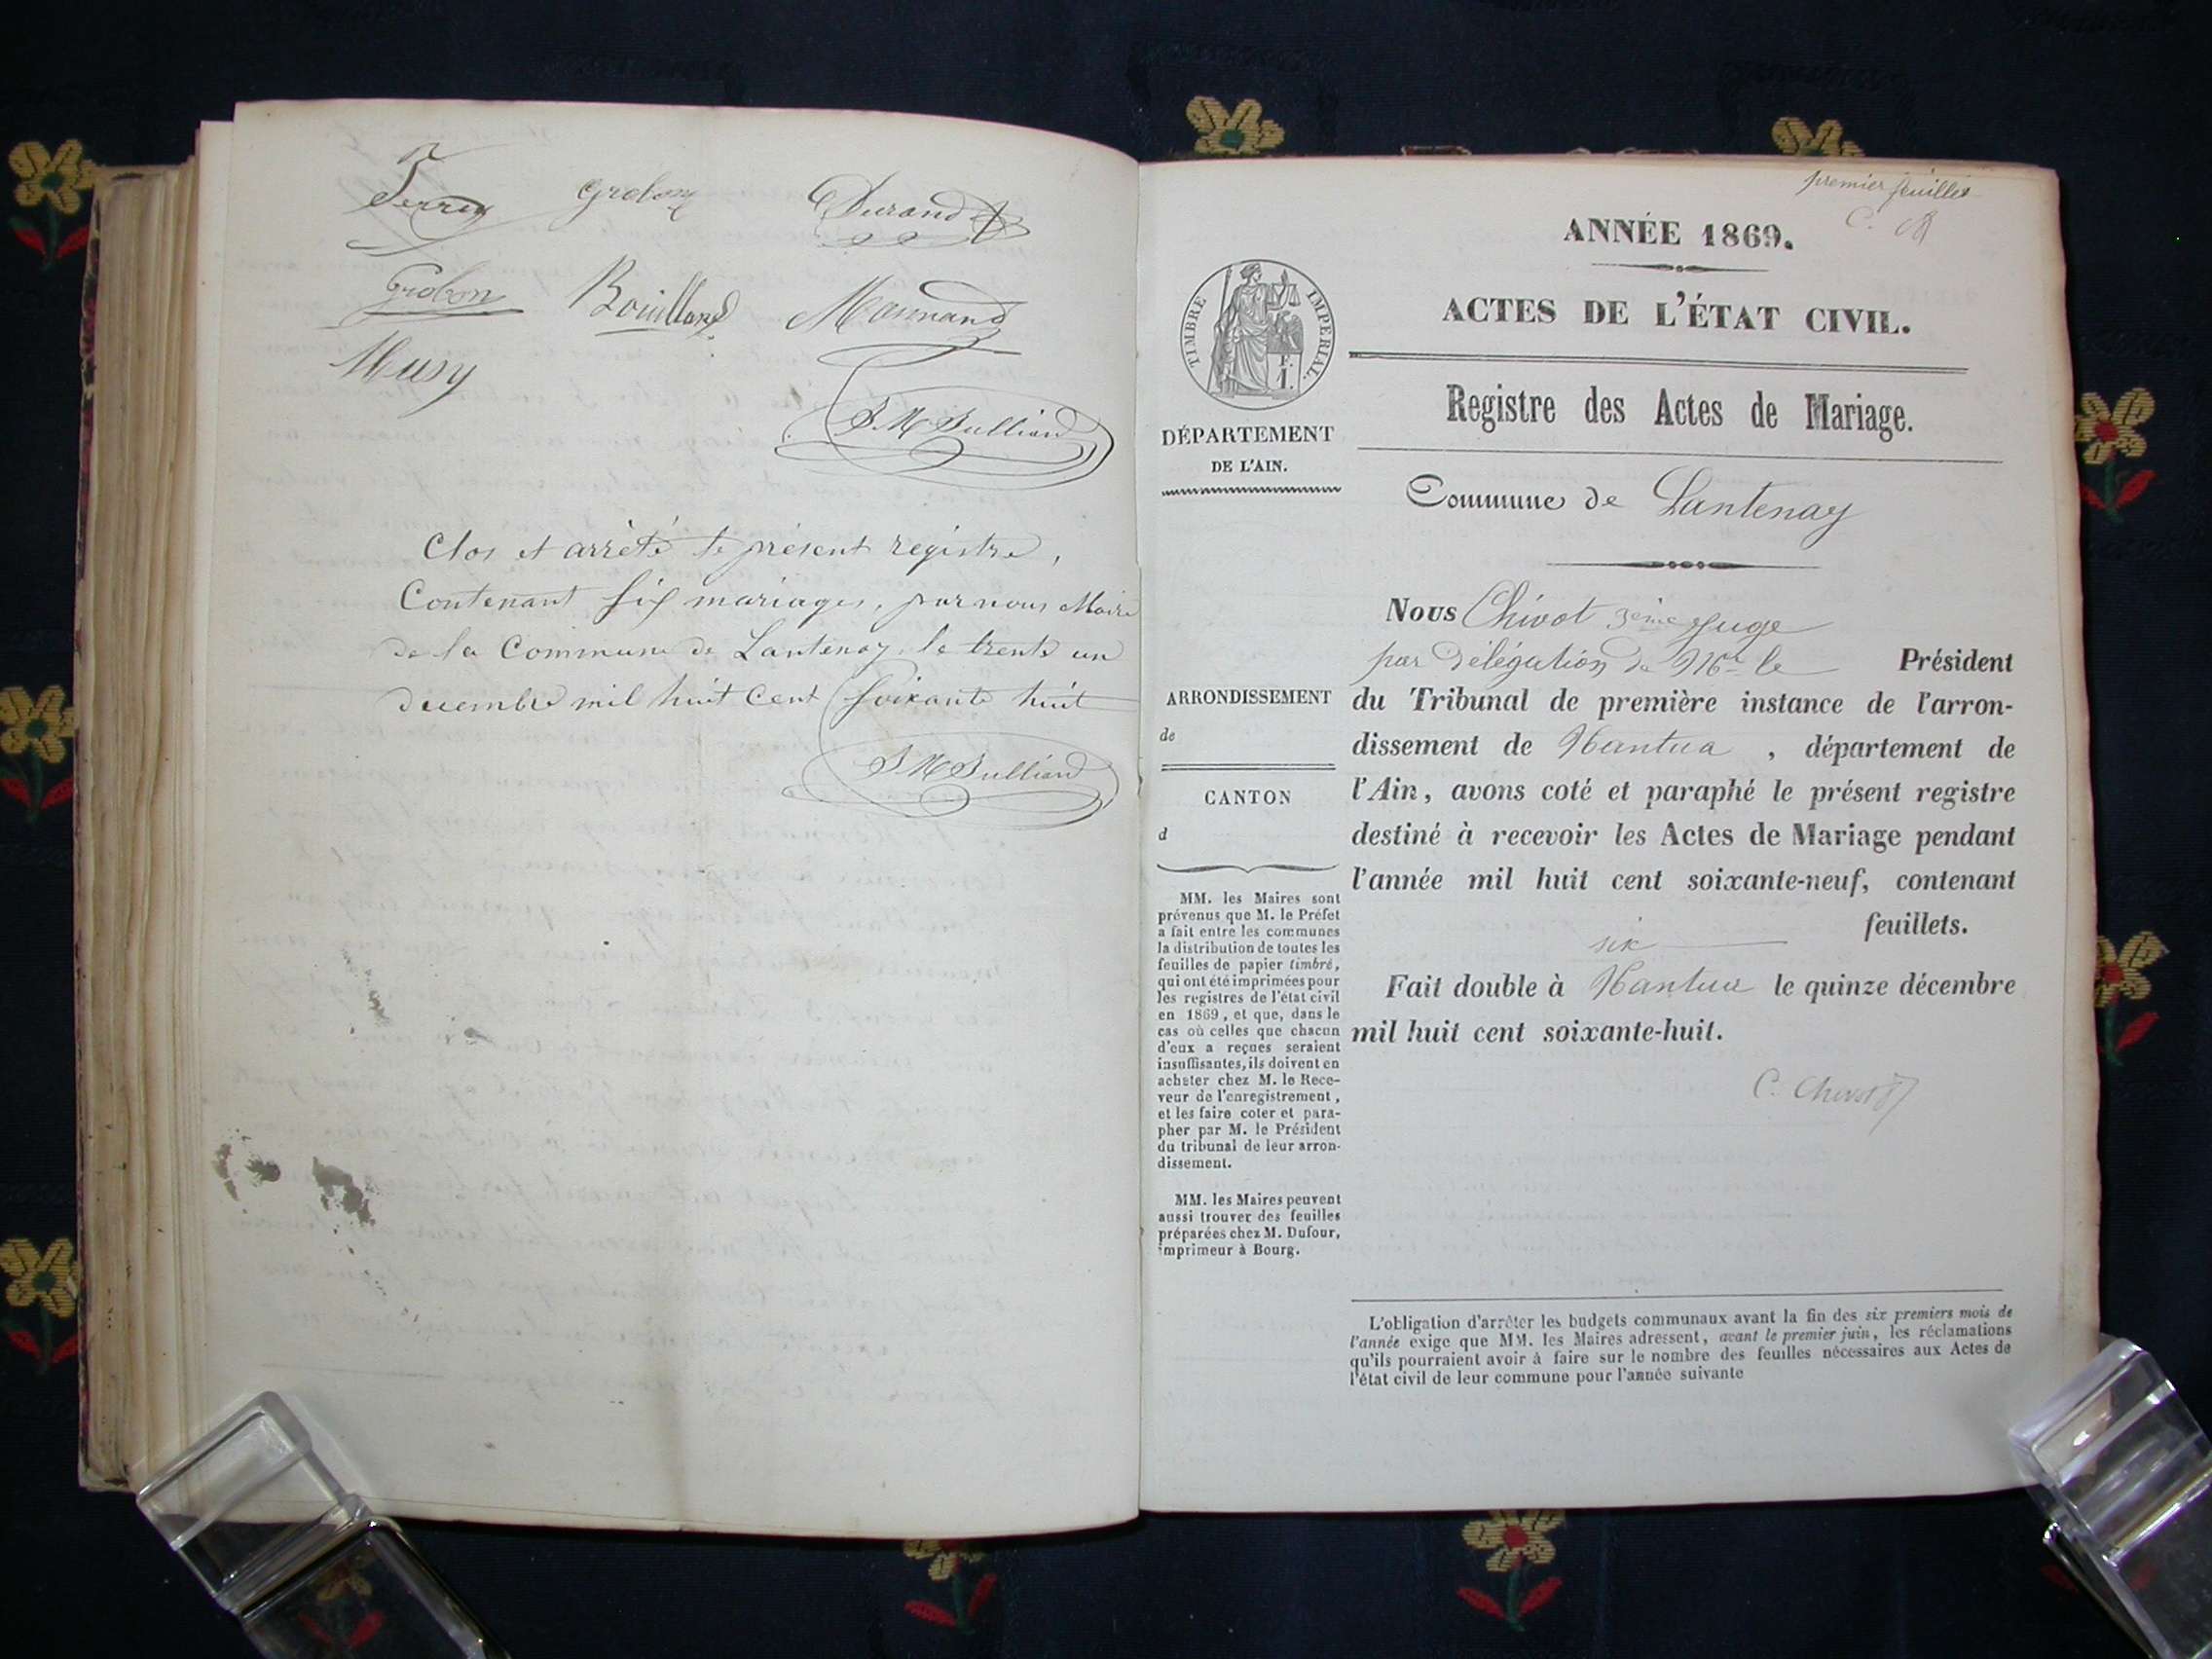 Grobon Durand
Grobon Bouillord Marinand
Musy
J M Julliard
Clos et arrêté le présent registre,
Contenant six mariages, par nous Maire
de la Commune de Lantenay, le trente un
décembre mil huit cent soixante huit
J M Julliard
premier feuillet
C.
ANNÉE 1869.
ACTES DE L'ÉTAT CIVIL.
TIMBRE IMPERIAL.
F.
1.
Registre des Actes de Mariage.
DÉPARTEMENT
DE L'AIN.
Commune de Lantenay
Nous Chivot 3eme Juge
par délégation de Mr le Président
du Tribunal de première instance de l'arron-
dissement de Nantua , département de
l'Ain, avons coté et paraphé le présent registre
destiné à recevoir les Actes de Mariage pendant
l'année mil huit cent soixante-neuf, contenant
six feuillets.
Fait double à Nantua le quinze décembre
mil huit cent soixante-huit.
C. Chivot
ARRONDISSEMENT
de
CANTON
d
MM. les Maires sont
prévenus que M. le Préfet
a fait entre les communes
la distribution de toutes les
feuilles de papier timbré,
qui ont été imprimées pour
les registres de l'état civil
en 1869, et que, dans le
cas où celles que chacun
d'eux a reçues seraient
insuffisantes, ils doivent en
acheter chez M. le Rece-
veur de l'enregistrement,
et les faire coter et para-
pher par M. le Président
du tribunal de leur arron-
dissement.
MM. les Maires peuvent
aussi trouver des feuilles
préparées chez M. Dufour,
imprimeur à Bourg.
L'obligation d'arrêter les budgets communaux avant la fin des six premiers mois de
l'année exige que MM. les Maires adressent, avant le premier juin, les réclamations
qu'ils pourraient avoir à faire sur le nombre des feuilles nécessaires aux Actes de
l'état civil de leur commune pour l'année suivante